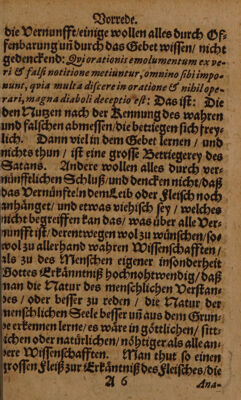 Vorrede.
die Vernunfft/einige wollen alles durch Of-
fenbarung uñ durch das Gebet wissen/ nicht
gedenckend: Qui orationis emolumentum ex ve-
ri & falsi notitione metiuntur, omnino sibi impo-
nunt, quia multa discere in oratione & nihil ope-
rari, magna diaboli deceptio est: Das ist: Die
den Nutzen nach der Kennung des wahren
und falschen abmessen/die betriegen sich frey-
lich. Dann viel in dem Gebet lernen / und
nichts thun / ist eine grosse Betriegerey des
Satans. Andere wollen alles durch ver-
nünfftlichen Schluß/und dencken nicht/daß
das Vernünffte in den Leib oder Fleisch noch
anhänget/ und etwas viehisch sey / welches
nicht begreiffen kan das/ was über alle Ver-
nunfft ist/ derentwegen wol zu wünschen/so-
wol zu allerhand wahren Wissenschafften/
als zu des Menschen eigener insonderheit
Gottes Erkänntniß hochnohtwendig/ daß
man die Natur des menschlichen Verstan-
des / oder besser zu reden / die Natur der
menschlichen Seele besser uñ aus dem Grun-
de erkennen lerne/ es wäre in göttlichen/ sitt-
lichen oder natürlichen/ nöhtiger als alle an-
dere Wissenschafften. Man thut so einen
grossen Fleiß zur Erkäntniß des Fleisches/die
A 6
Ana-